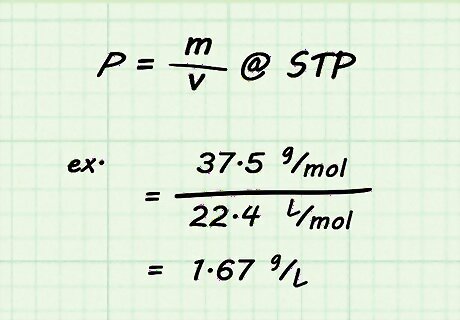 P = m/v @ STP
ex· = 37·5 g/mol / 22·4 L/mol
= 1·67 g/L